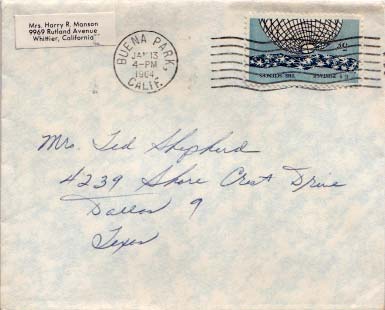 Mrs. Harry R. Manson
9969 Rutland Avenue
Whittier, California
BUENA PARK,
JAN 13
4-PM
1964
CALIF.
5¢
U.S. POSTAGE THE SCIENCES
Mrs. Ted Shepherd
4239 Shore Crest Drive
Dallas 9
Texas